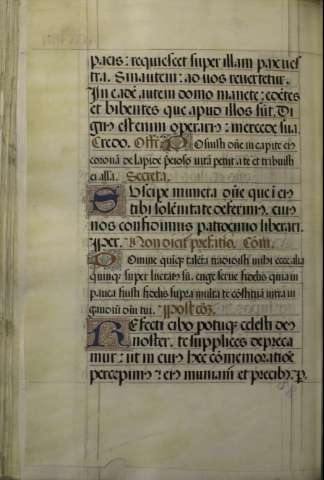 pacis: requiescet super illam pax ves
tra. Sin autem: ad vos revertetur.
In eadē autem domo manete: edētes
et bibentes que apud illos sūt. Di
gnus est enim operarius: mercede sua.
Credo. Offm̄ Posuisti dn̄e in capite eius
coronā de lapide p̄cioso: vitā petiit a te et tribuisti
ei alla. Secreta.
Suscipe munera dn̄e que i eius
tibi solēnitate deferimus. cuius
nos confidimus patrocinio liberari.
Per. Non dicitur prefatio. Cōm.
Domine quinq; talēta tradidisti mihi ecce alia
quinq; super lucratus sū. euge serve fidelis quia in
pauca fuisti fidelis supra multa te cōstituā intra in
gaudiū dn̄i tui. Postcō3.
Refecti cibo potuq; celesti deus
noster. te supplices depreca
mur: ut in cuius hec cōmemoratiōe
percepimus: eius muniamur et precibus. P.